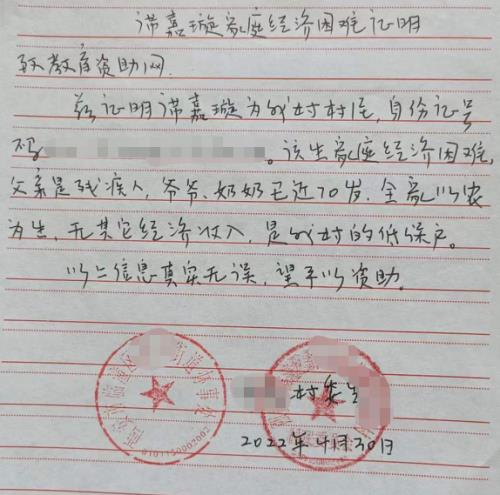 谌嘉璇家庭经济困难证明
环教育资助网.
兹证明谌嘉璇为我村村民,身份证号
码 。该生家庭经济困难,
父亲是残疾人,爷爷、奶奶已近70岁.全家以农
为生,无其它经济收入,是我村的低保户。
以上信息真实无误,望予以资助。
村委会
2022年4月30日
西安市临潼区 街道办事处
6101150002002